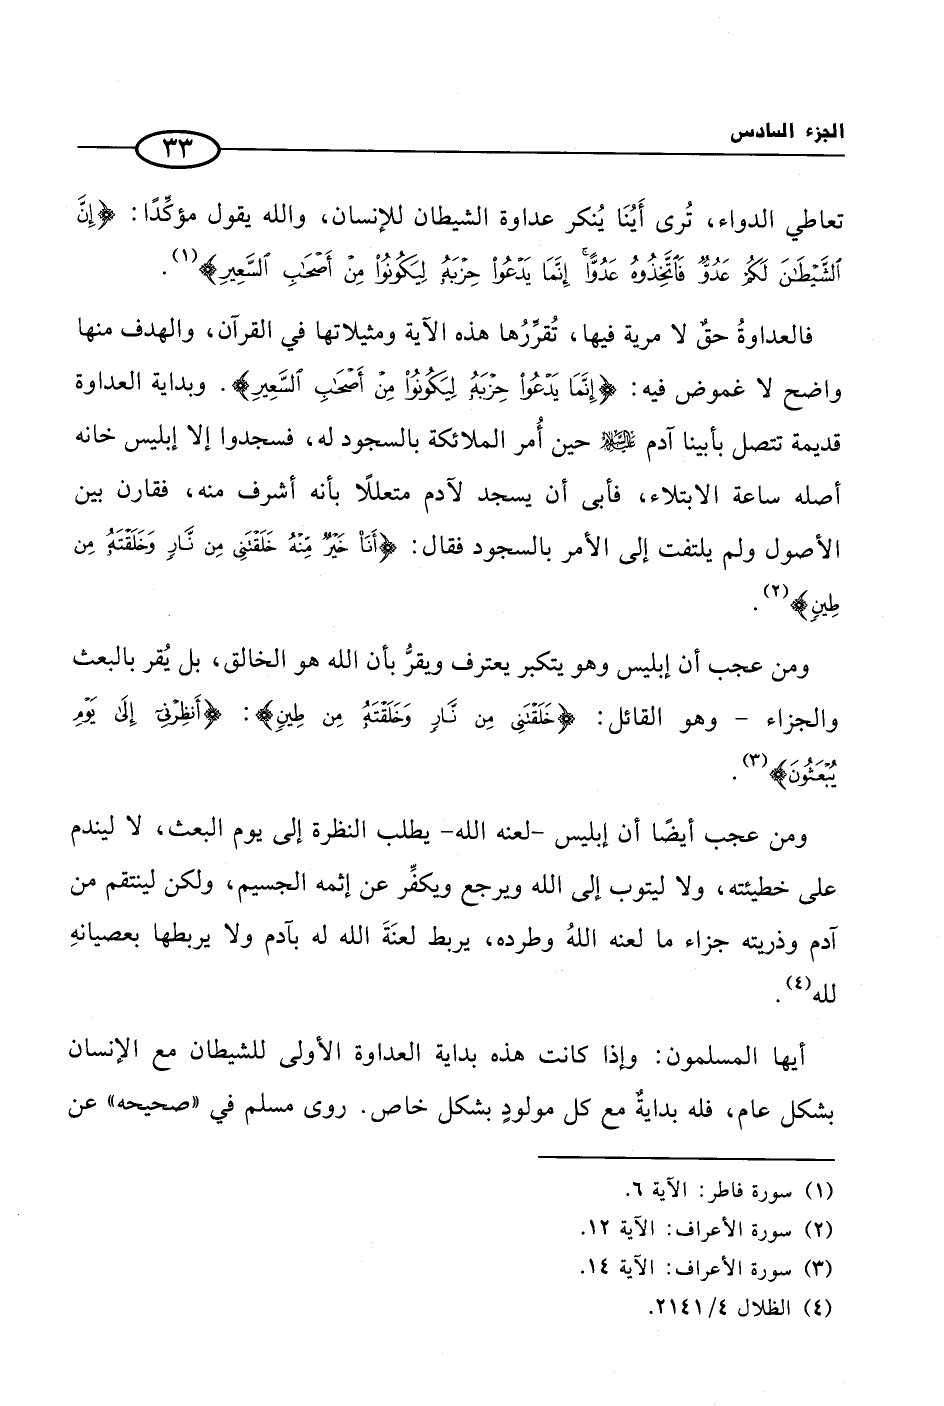 الجزء السادس
٣٣
تعاطي الدواء، تُرى أَيُنَا يُنكر عداوة الشيطان للإنسان، والله يقول مؤكِّدًا: ﴿إِنَّ
ٱلشَّيْطَٰنَ لَكُمْ عَدُوٌّ فَٱتَّخِذُوهُ عَدُوًّا ۚ إِنَّمَا يَدْعُوا۟ حِزْبَهُۥ لِيَكُونُوا۟ مِنْ أَصْحَٰبِ ٱلسَّعِيرِ﴾(١).
فالعداوةُ حقٌ لا مرية فيها، تُقرِّرُها هذه الآية ومثيلاتها في القرآن، والهدف منها
واضح لا غموض فيه: ﴿إِنَّمَا يَدْعُوا۟ حِزْبَهُۥ لِيَكُونُوا۟ مِنْ أَصْحَٰبِ ٱلسَّعِيرِ﴾. وبداية العداوة
قديمة تتصل بأبينا آدم عليه السلام حين أُمر الملائكة بالسجود له، فسجدوا إلا إبليس خانه
أصله ساعة الابتلاء، فأبى أن يسجد لآدم متعللًا بأنه أشرف منه، فقارن بين
الأصول ولم يلتفت إلى الأمر بالسجود فقال: ﴿أَنَا۠ خَيْرٌ مِّنْهُ خَلَقْتَنِى مِن نَّارٍ وَخَلَقْتَهُۥ مِن
طِينٍ﴾(٢).
ومن عجب أن إبليس وهو يتكبر يعترف ويقرُّ بأن الله هو الخالق، بل يُقر بالبعث
والجزاء – وهو القائل: ﴿خَلَقْتَنِى مِن نَّارٍ وَخَلَقْتَهُۥ مِن طِينٍ﴾: ﴿أَنظِرْنِىٓ إِلَىٰ يَوْمِ
يُبْعَثُونَ﴾(٣).
ومن عجب أيضًا أن إبليس -لعنه الله- يطلب النظرة إلى يوم البعث، لا ليندم
على خطيئته، ولا ليتوب إلى الله ويرجع ويكفِّر عن إثمه الجسيم، ولكن لينتقم من
آدم وذريته جزاء ما لعنه اللهُ وطرده، يربط لعنَةَ الله له بآدم ولا يربطها بعصيانهِ
لله(٤).
أيها المسلمون: وإذا كانت هذه بداية العداوة الأولى للشيطان مع الإنسان
بشكل عام، فله بدايةٌ مع كل مولودٍ بشكل خاص. روى مسلم في «صحيحه» عن
(١) سورة فاطر: الآية ٦.
(٢) سورة الأعراف: الآية ١٢.
(٣) سورة الأعراف: الآية ١٤.
(٤) الظلال ٤/ ٢١٤١.